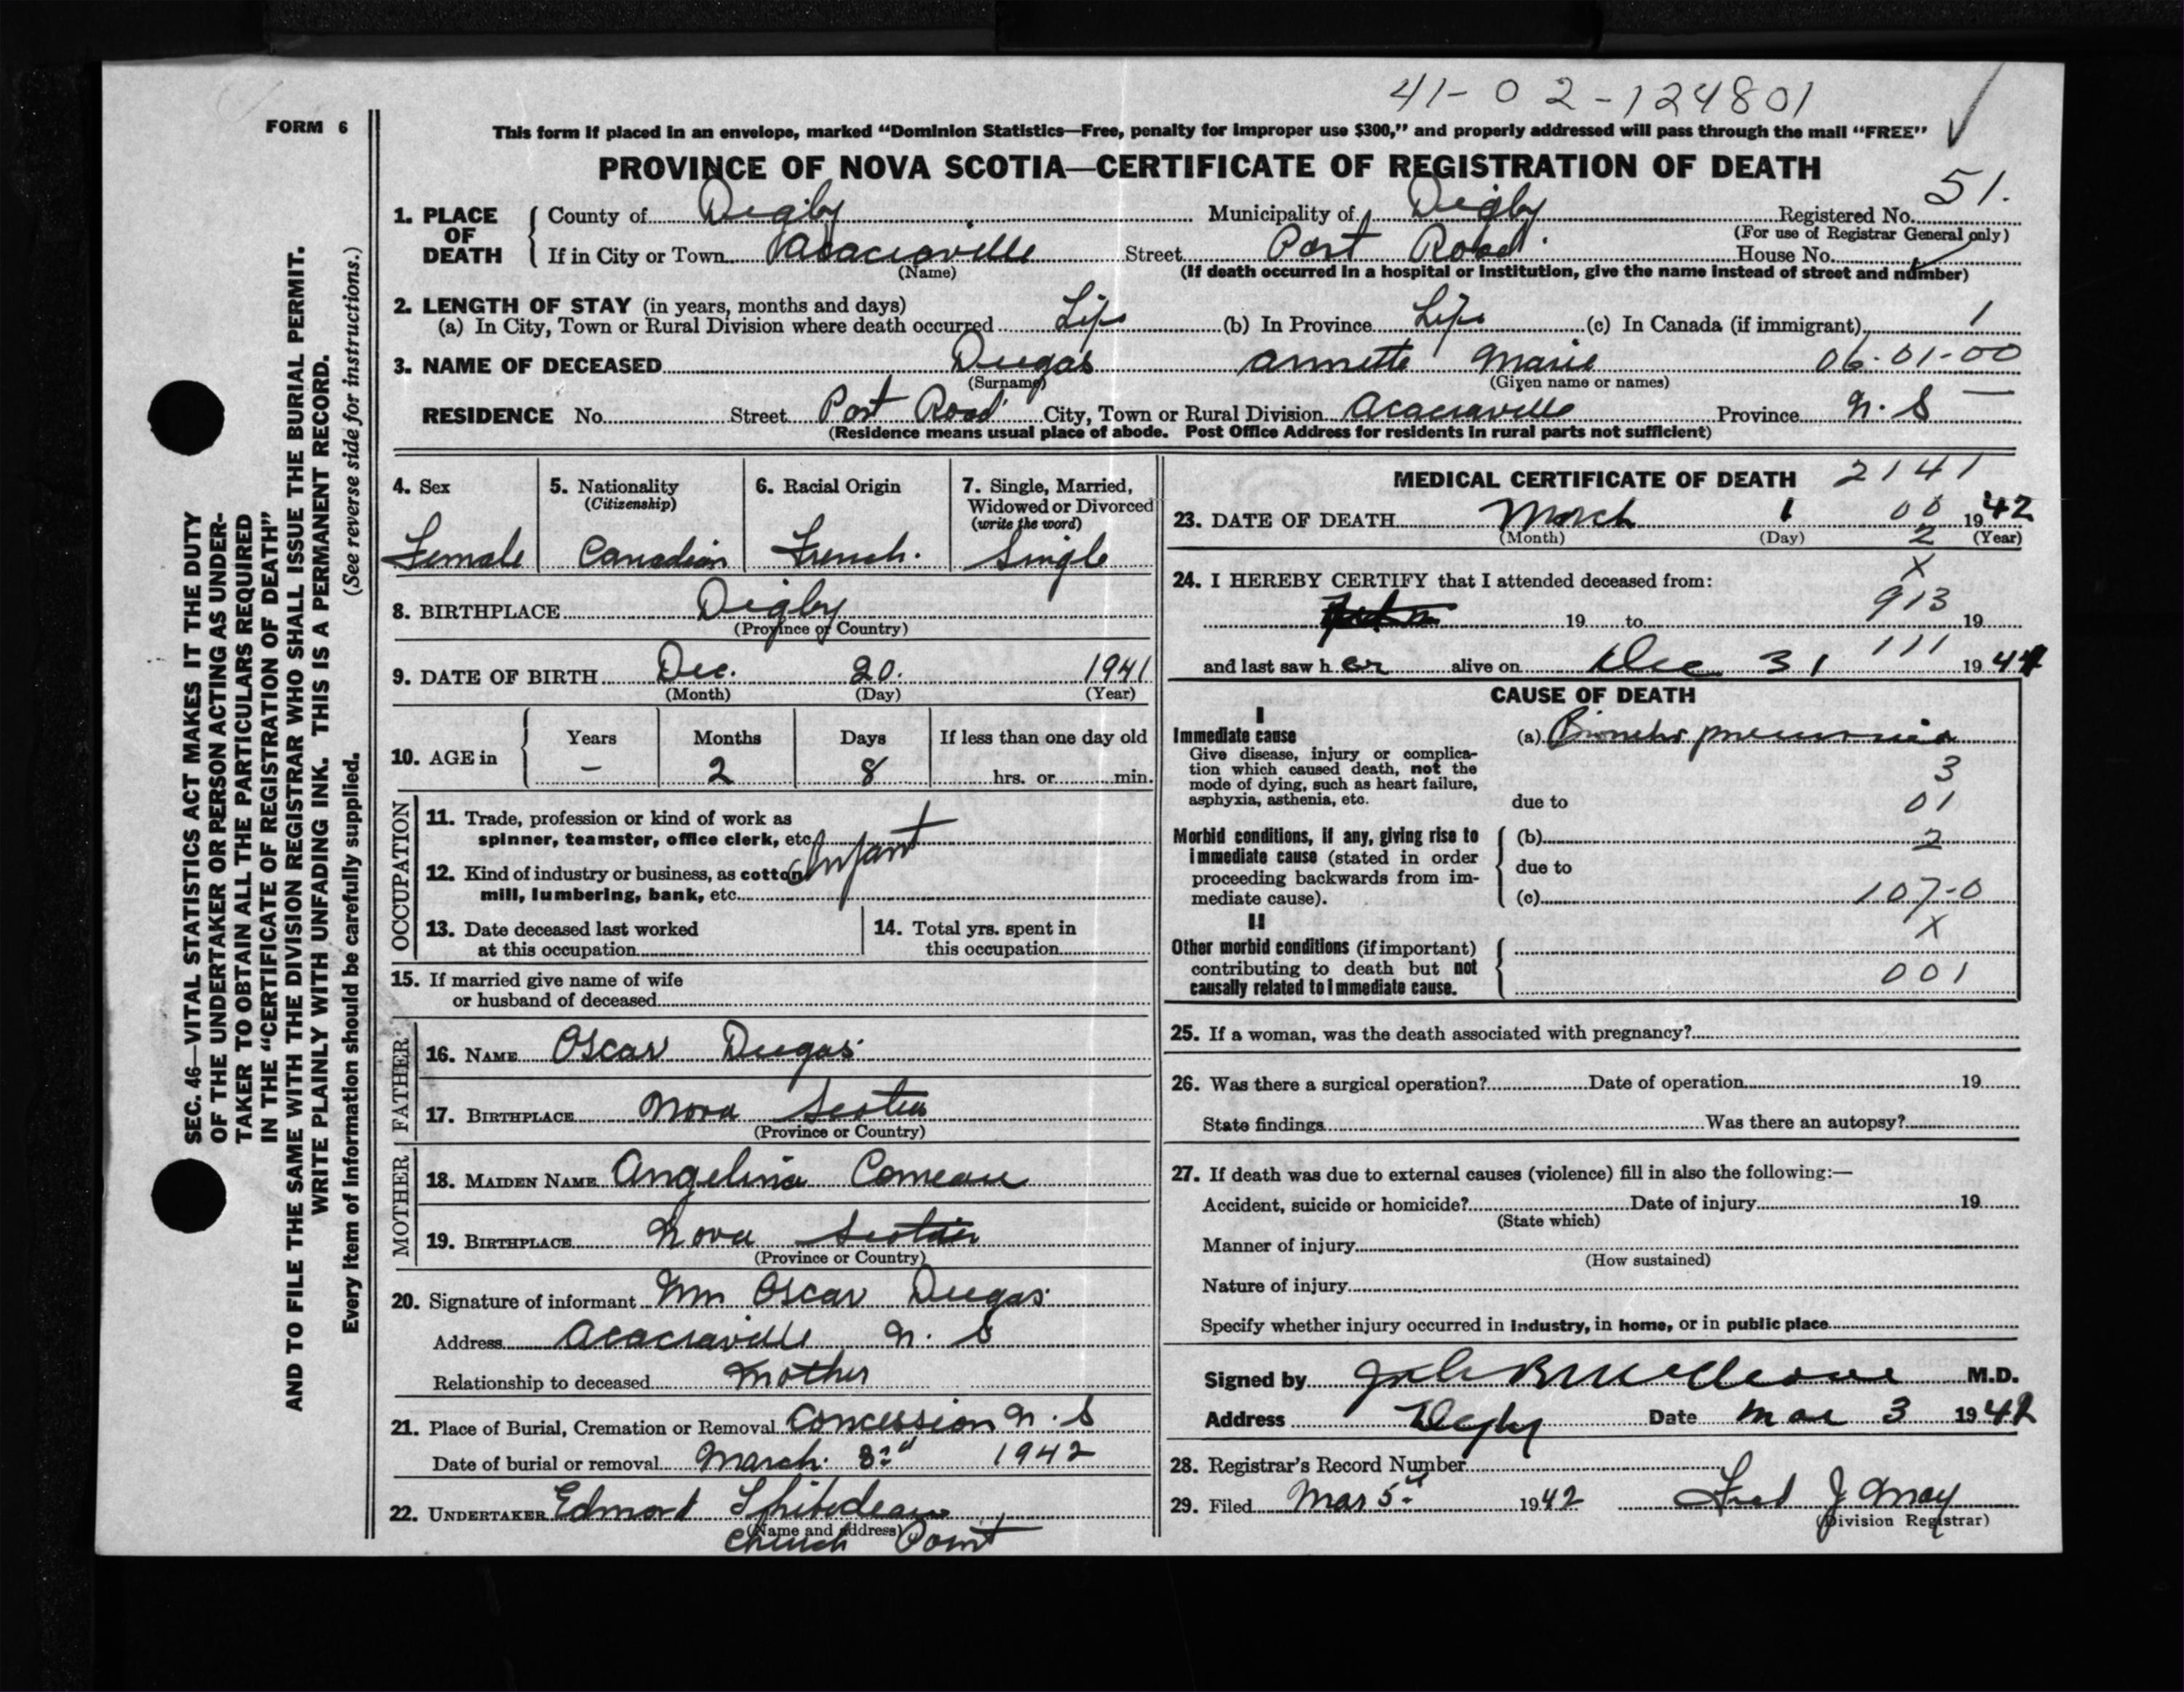 41-02-124801
FORM 6
This form if placed in an envelope, marked “Dominion Statistics—Free, penalty for improper use $300,” and properly addressed will pass through the mail “FREE”
PROVINCE OF NOVA SCOTIA—CERTIFICATE OF REGISTRATION OF DEATH
51.
1. PLACE OF DEATH { County of Digby Municipality of Digby Registered No.
(For use of Registrar General only)
If in City or Town Acaciaville Street Post Road House No.
(Name) (If death occurred in a hospital or institution, give the name instead of street and number)
2. LENGTH OF STAY (in years, months and days)
(a) In City, Town or Rural Division where death occurred Life (b) In Province Life (c) In Canada (if immigrant) 1
3. NAME OF DECEASED Dugas Annette Marie 06-01-00
(Surname) (Given name or names)
RESIDENCE No. Street Post Road City, Town or Rural Division Acaciaville Province N. S
(Residence means usual place of abode. Post Office Address for residents in rural parts not sufficient)
4. Sex
Female
5. Nationality
(Citizenship)
Canadian
6. Racial Origin
French.
7. Single, Married,
Widowed or Divorced
(write the word)
Single
8. BIRTHPLACE Digby
(Province or Country)
9. DATE OF BIRTH Dec. 20. 1941
(Month) (Day) (Year)
10. AGE in { Years Months Days If less than one day old
– 2 8 hrs. or min.
OCCUPATION
11. Trade, profession or kind of work as
spinner, teamster, office clerk, etc.
Infant
12. Kind of industry or business, as cotton
mill, lumbering, bank, etc.
13. Date deceased last worked
at this occupation
14. Total yrs. spent in
this occupation
15. If married give name of wife
or husband of deceased
FATHER
16. NAME Oscar Dugas
17. BIRTHPLACE Nova Scotia
(Province or Country)
MOTHER
18. MAIDEN NAME Angelina Comeau
19. BIRTHPLACE Nova Scotia
(Province or Country)
20. Signature of informant Mrs Oscar Dugas
Address Acaciaville N. S
Relationship to deceased Mother
21. Place of Burial, Cremation or Removal Concession N. S
Date of burial or removal March 3rd 1942
22. UNDERTAKER Edmond
(Name and address)
Church Point
MEDICAL CERTIFICATE OF DEATH 2141
23. DATE OF DEATH March 1 00 1942
(Month) (Day) 2 (Year)
X
24. I HEREBY CERTIFY that I attended deceased from:
913
19 to 19
111
and last saw her alive on Dec 31 1941
CAUSE OF DEATH
I
Immediate cause
Give disease, injury or complica-
tion which caused death, not the
mode of dying, such as heart failure,
asphyxia, asthenia, etc.
(a) Broncho pneumonia
3
due to 01
Morbid conditions, if any, giving rise to
immediate cause (stated in order
proceeding backwards from im-
mediate cause).
(b) 2
due to
(c) 107-0
X
II
Other morbid conditions (if important)
contributing to death but not
causally related to immediate cause.
001
25. If a woman, was the death associated with pregnancy?
26. Was there a surgical operation? Date of operation 19
State findings Was there an autopsy?
27. If death was due to external causes (violence) fill in also the following:—
Accident, suicide or homicide? Date of injury 19
(State which)
Manner of injury
(How sustained)
Nature of injury
Specify whether injury occurred in industry, in home, or in public place
Signed by M.D.
Address Digby Date Mar 3 1942
28. Registrar's Record Number
29. Filed Mar 5th 1942 Fred J May
(Division Registrar)
SEC. 46—VITAL STATISTICS ACT MAKES IT THE DUTY
OF THE UNDERTAKER OR PERSON ACTING AS UNDER-
TAKER TO OBTAIN ALL THE PARTICULARS REQUIRED
IN THE “CERTIFICATE OF REGISTRATION OF DEATH”
AND TO FILE THE SAME WITH THE DIVISION REGISTRAR WHO SHALL ISSUE THE BURIAL PERMIT.
WRITE PLAINLY WITH UNFADING INK. THIS IS A PERMANENT RECORD.
Every item of information should be carefully supplied. (See reverse side for instructions.)